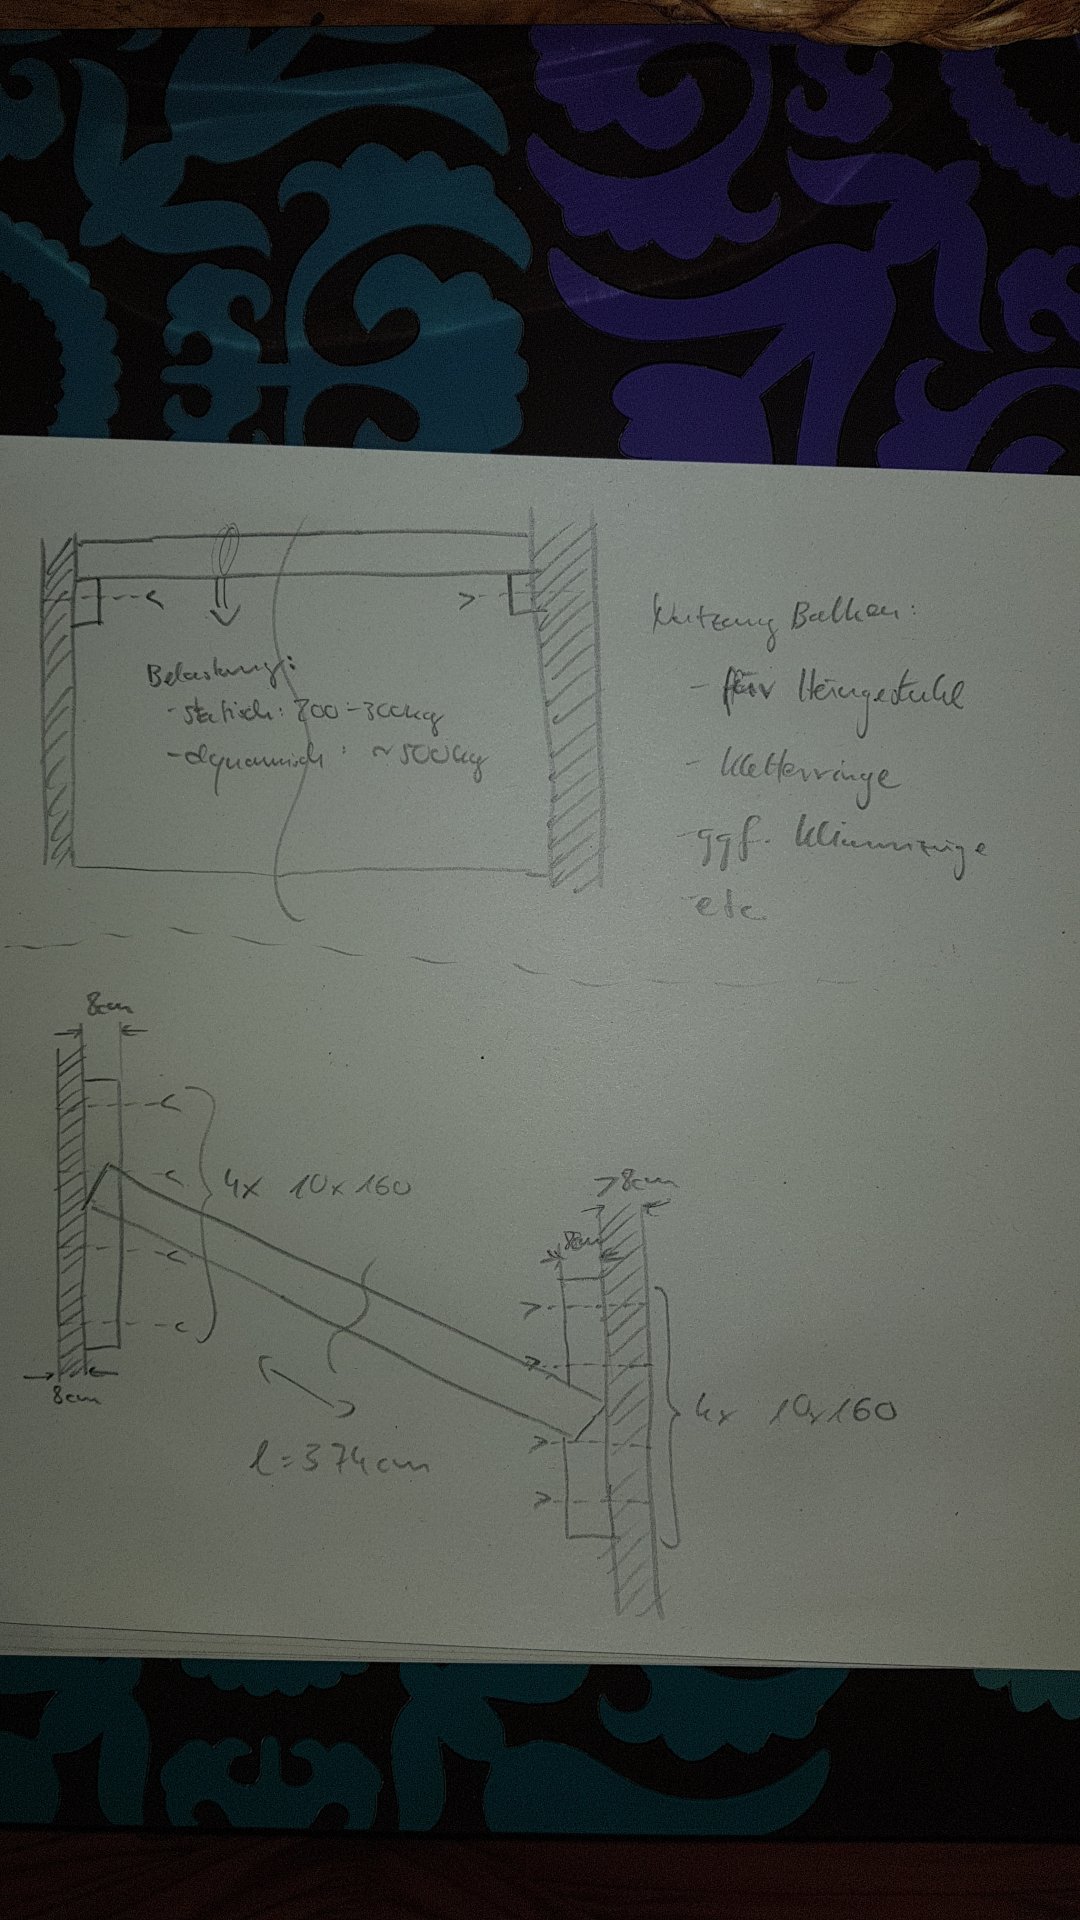 Nutzung Balken:
- für Hängestuhl
- Kletterringe
- ggf. Klimmzüge
- etc
Belastung:
- statisch: 200-300kg
- dynamisch: ~500kg
8cm
4x 10x160
8cm
l=374cm
>8cm
8cm
4x 10x160